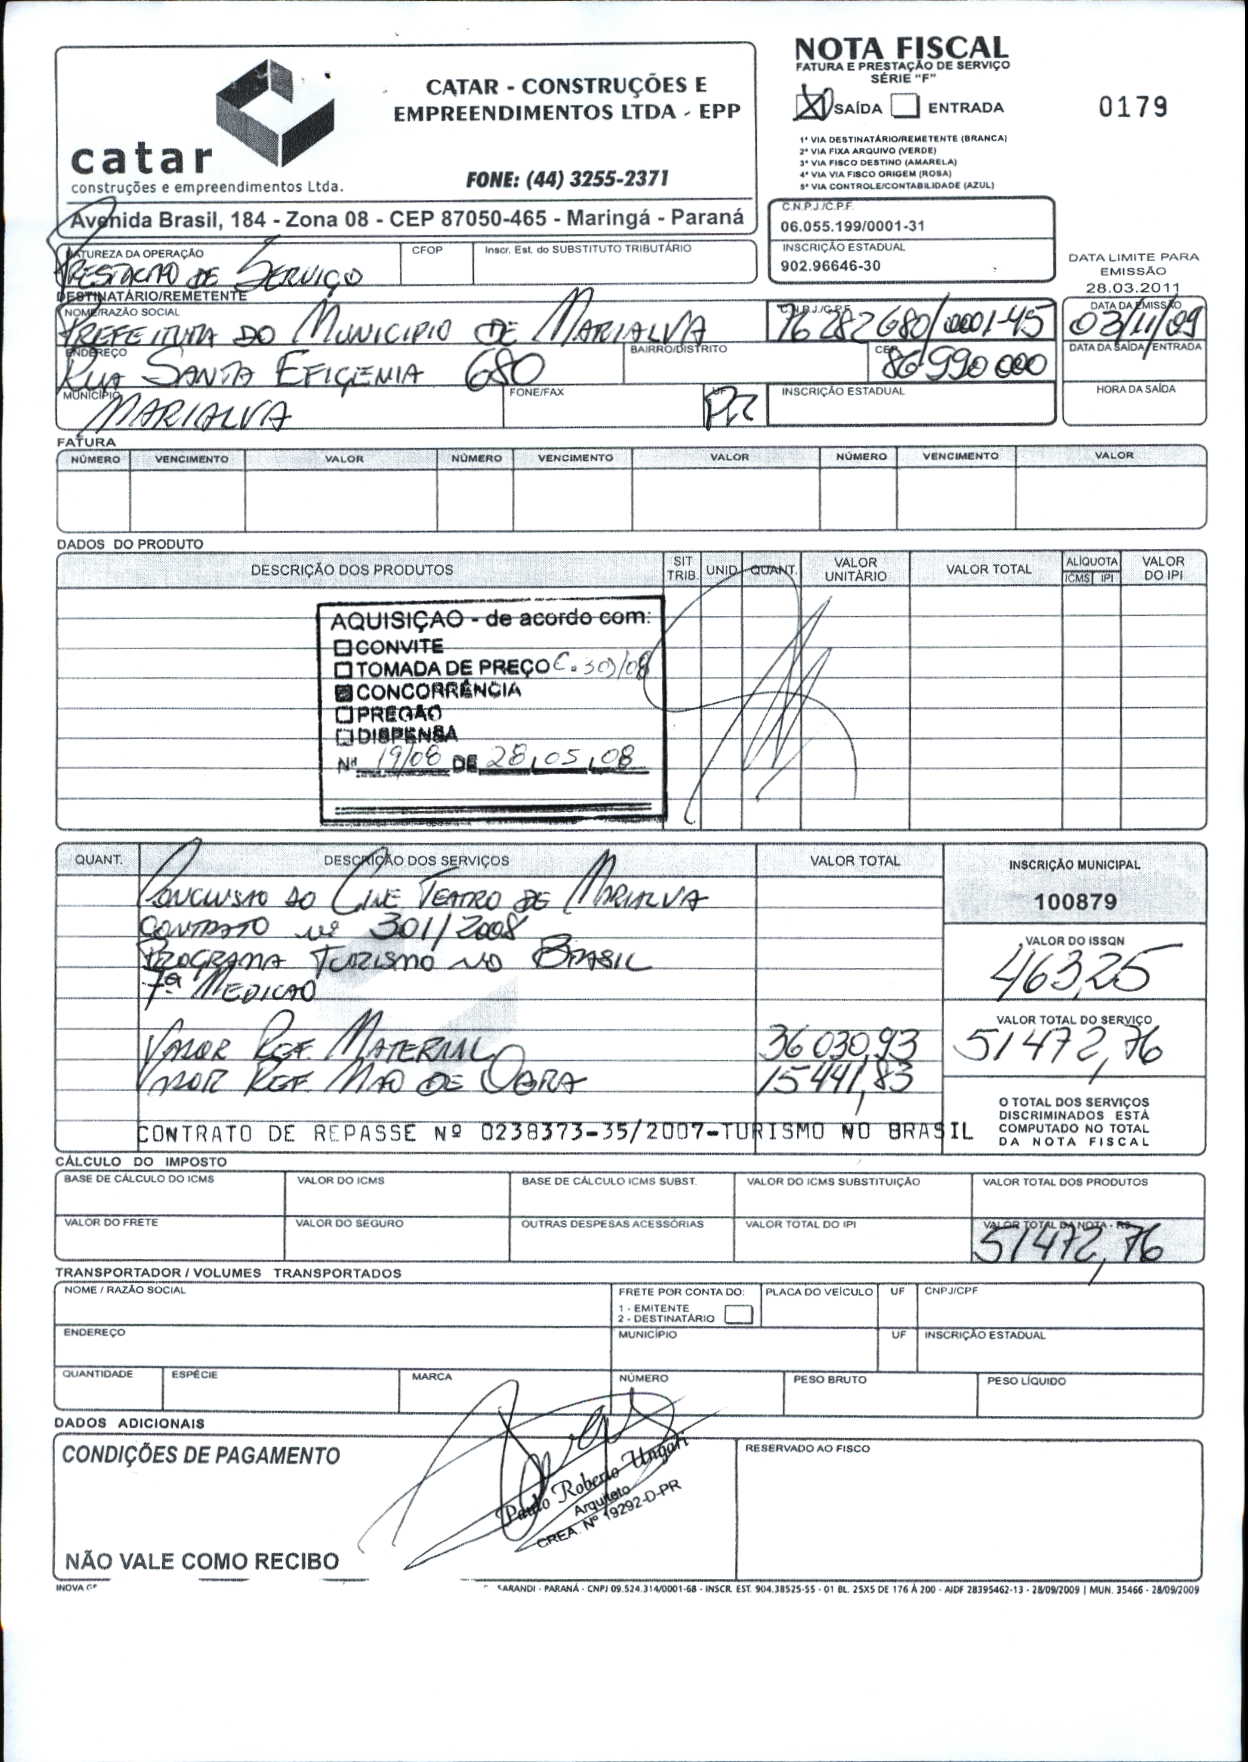 NOTA FISCAL
FATURA E PRESTAÇÃO DE SERVIÇO
SÉRIE "F"
SAÍDA ENTRADA
0179
CATAR - CONSTRUÇÕES E
EMPREENDIMENTOS LTDA - EPP
catar
construções e empreendimentos Ltda.
FONE: (44) 3255-2371
Avenida Brasil, 184 - Zona 08 - CEP 87050-465 - Maringá - Paraná
1ª VIA DESTINATÁRIO/REMETENTE (BRANCA)
2ª VIA FIXA ARQUIVO (VERDE)
3ª VIA FISCO DESTINO (AMARELA)
4ª VIA VIA FISCO ORIGEM (ROSA)
5ª VIA CONTROLE/CONTABILIDADE (AZUL)
C.N.P.J./C.P.F.
06.055.199/0001-31
INSCRIÇÃO ESTADUAL
902.96646-30
DATA LIMITE PARA
EMISSÃO
28.03.2011
NATUREZA DA OPERAÇÃO CFOP Inscr. Est. do SUBSTITUTO TRIBUTÁRIO
PRESTACAO DE SERVIÇO
DESTINATÁRIO/REMETENTE
NOME/RAZÃO SOCIAL C.N.P.J./C.P.F. DATA DA EMISSÃO
PREFEITURA DO MUNICIPIO DE MARIALVA 76282680/0001-45 03/11/09
ENDEREÇO BAIRRO/DISTRITO CEP DATA DA SAÍDA/ENTRADA
RUA SANTA EFIGENIA 680 86990000
MUNICÍPIO FONE/FAX UF INSCRIÇÃO ESTADUAL HORA DA SAÍDA
MARIALVA PR
FATURA
NÚMERO VENCIMENTO VALOR NÚMERO VENCIMENTO VALOR NÚMERO VENCIMENTO VALOR
DADOS DO PRODUTO
DESCRIÇÃO DOS PRODUTOS SIT TRIB. UNID QUANT. VALOR UNITÁRIO VALOR TOTAL ALÍQUOTA ICMS IPI VALOR DO IPI
AQUISIÇAO - de acordo com:
CONVITE
TOMADA DE PREÇO C. 30/08
CONCORRÊNCIA
PREGÃO
DISPENSA
Nº 19/08 DE 28,05,08
QUANT. DESCRIÇÃO DOS SERVIÇOS VALOR TOTAL
CONCLUSAO DO CINE TEATRO DE MARIALVA
CONTRATO nº 301/2008
PROGRAMA TURISMO NO BRASIL
7ª MEDICAO
VALOR REF. MATERIAL 36030,93
VALOR REF. MAO DE OBRA 15441,83
CONTRATO DE REPASSE Nº 0238373-35/2007-TURISMO NO BRASIL
INSCRIÇÃO MUNICIPAL
100879
VALOR DO ISSQN
463,25
VALOR TOTAL DO SERVIÇO
51472,76
O TOTAL DOS SERVIÇOS
DISCRIMINADOS ESTÁ
COMPUTADO NO TOTAL
DA NOTA FISCAL
CÁLCULO DO IMPOSTO
BASE DE CÁLCULO DO ICMS VALOR DO ICMS BASE DE CÁLCULO ICMS SUBST. VALOR DO ICMS SUBSTITUIÇÃO VALOR TOTAL DOS PRODUTOS
VALOR DO FRETE VALOR DO SEGURO OUTRAS DESPESAS ACESSÓRIAS VALOR TOTAL DO IPI VALOR TOTAL DA NOTA - R$
51472,76
TRANSPORTADOR / VOLUMES TRANSPORTADOS
NOME / RAZÃO SOCIAL FRETE POR CONTA DO: PLACA DO VEÍCULO UF CNPJ/CPF
1 - EMITENTE
2 - DESTINATÁRIO
ENDEREÇO MUNICÍPIO UF INSCRIÇÃO ESTADUAL
QUANTIDADE ESPÉCIE MARCA NÚMERO PESO BRUTO PESO LÍQUIDO
DADOS ADICIONAIS
CONDIÇÕES DE PAGAMENTO
RESERVADO AO FISCO
Paulo Roberto Ungari
Arquiteto
CREA Nº 19292-D-PR
NÃO VALE COMO RECIBO
INOVA SARANDI - PARANÁ - CNPJ 09.524.314/0001-68 - INSCR. EST. 904.38525-55 - 01 BL. 25X5 DE 176 À 200 - AIDF 28395462-13 - 28/09/2009 | MUN. 35466 - 28/09/2009